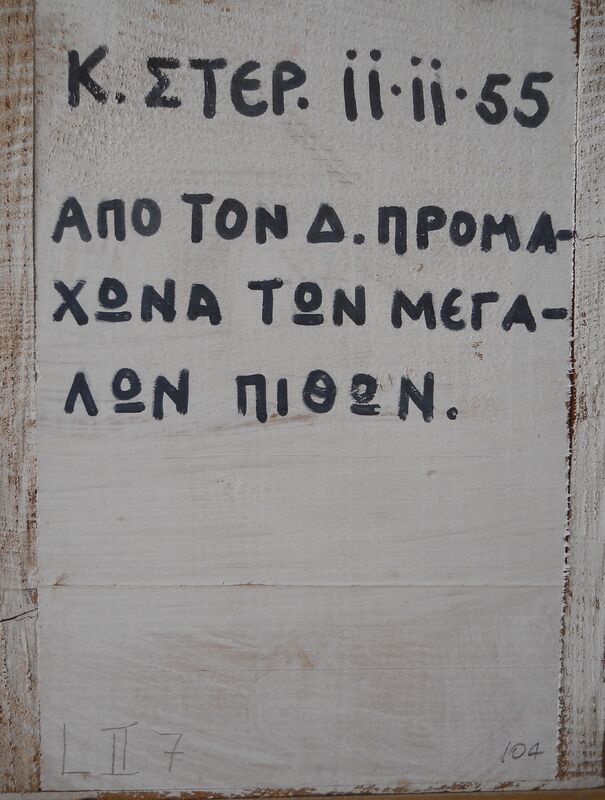 Κ. ΣΤΕΡ. ii·ii·55
ΑΠΟ ΤΟΝ Δ. ΠΡΟΜΑ-
ΧΩΝΑ ΤΩΝ ΜΕΓΑ-
ΛΩΝ ΠΙΘΩΝ.
L II 7
104